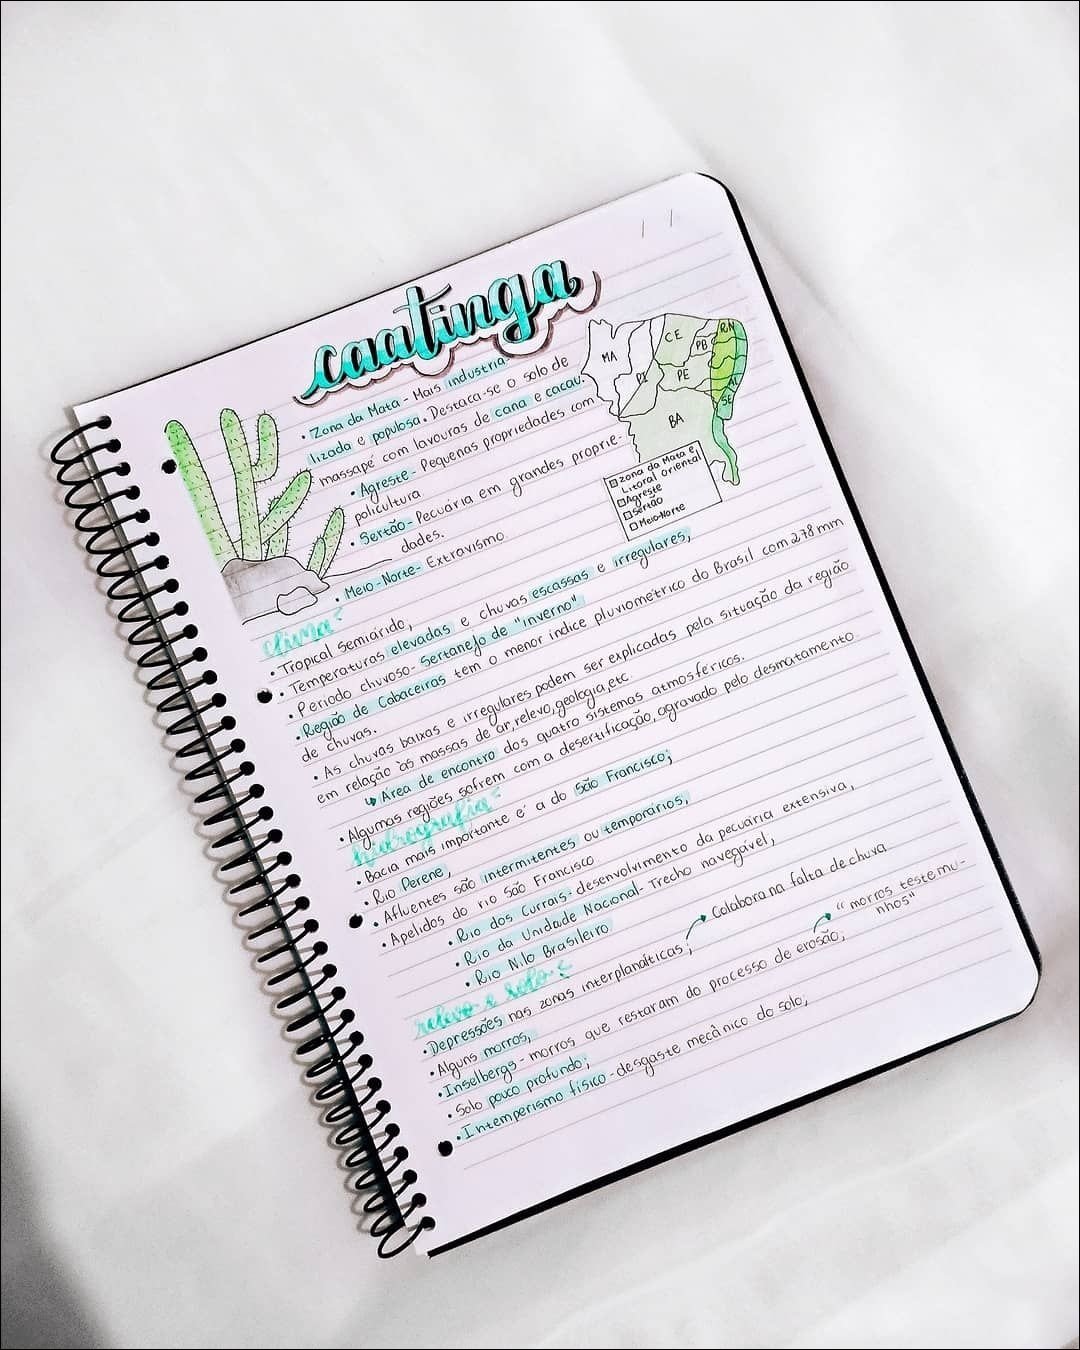 / /
caatinga
• Zona da Mata - Mais industria-
lizada e populosa. Destaca-se o solo de
massapé com lavouras de cana e cacau.
• Agreste - Pequenas propriedades com
policultura
• Sertão - Pecuária em grandes proprie-
dades.
• Meio-Norte - Extrativismo.
MA
PI
CE
RN
PB
PE
AL
SE
BA
Zona da Mata e
Litoral Oriental
Agreste
Sertão
Meio-Norte
clima
• Tropical Semiárido,
• Temperaturas elevadas e chuvas escassas e irregulares,
• Periodo chuvoso - Sertanejo de "inverno".
• Região de Cabaceiras tem o menor indice pluviométrico do Brasil com 278 mm
de chuvas.
• As chuvas baixas e irregulares podem ser explicadas pela situação da região
em relação às massas de ar, relevo, geologia, etc.
↳ Área de encontro dos quatro sistemas atmosféricos.
• Algumas regiões sofrem com a desertificação, agravado pelo desmatamento.
hidrografia
• Bacia mais importante é a do São Francisco;
• Rio Perene,
• Afluentes são intermitentes ou temporários,
• Apelidos do rio São Francisco
• Rio dos Currais - desenvolvimento da pecuária extensiva,
• Rio da Unidade Nacional - Trecho navegável,
• Rio Nilo Brasileiro
relevo e solo
• Depressões nas zonas interplanálticas; → Colabora na falta de chuva
• Alguns morros,
• Inselbergs - morros que restaram do processo de erosão; → "morros testemu-
nhos"
• Solo pouco profundo;
• Intemperismo físico - desgaste mecânico do solo;